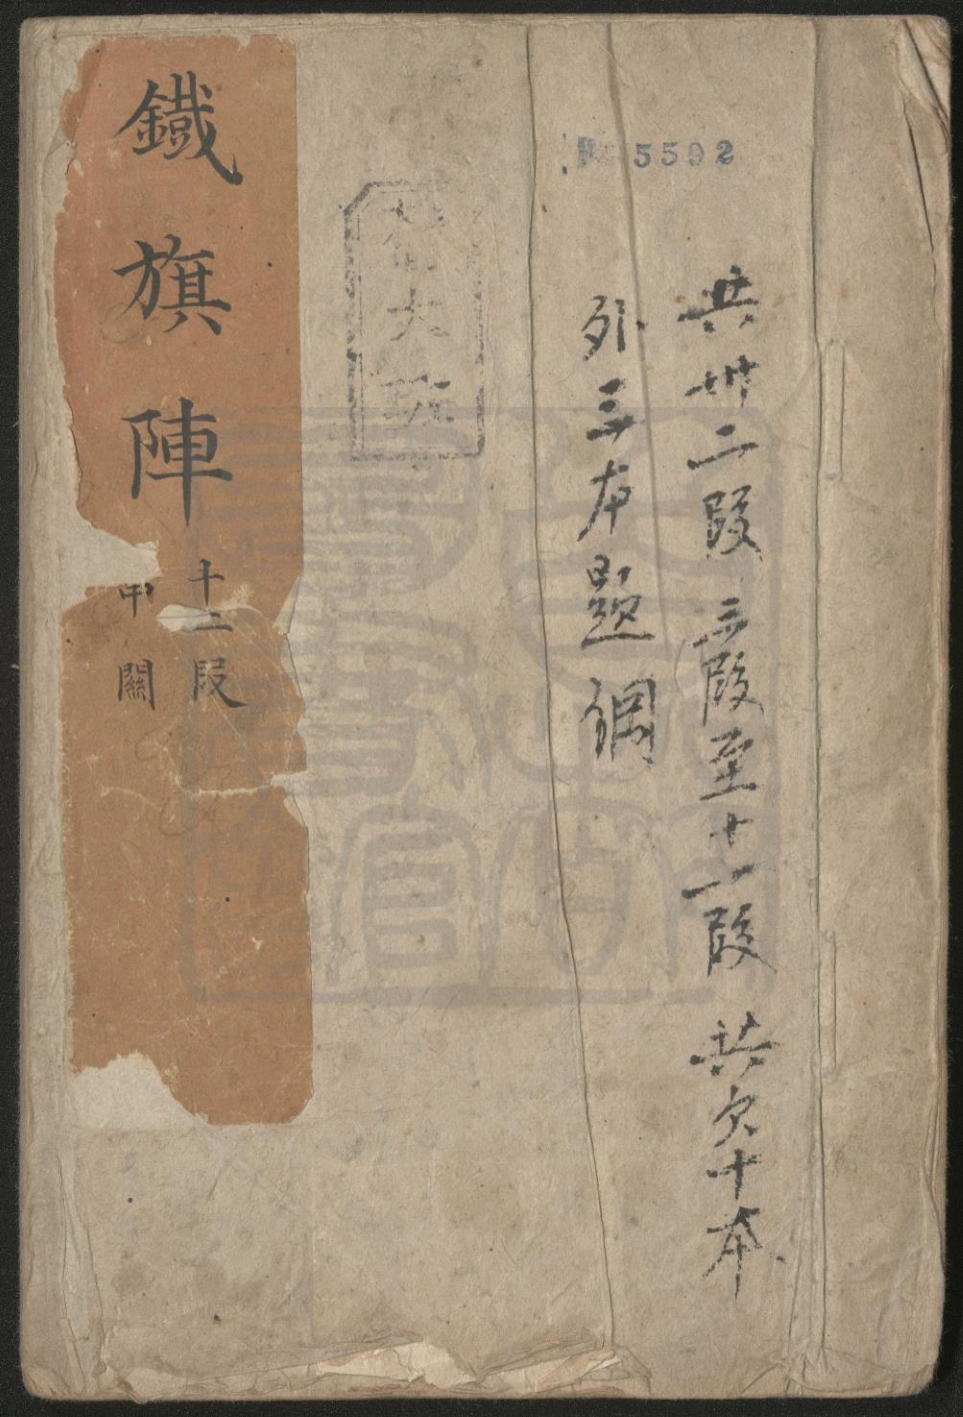 5592
共卅二段 三段至十一段 共欠十本
外三本題綱
大班
鐵旗陣
十二段
串關